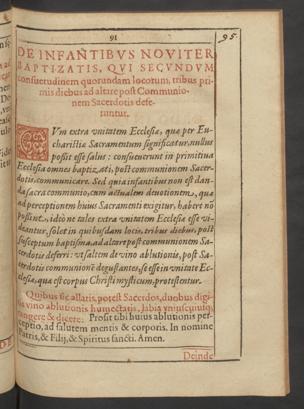 91
95.
DE INFANTIBVS NOVITER
BAPTIZATIS, QVI SECVNDVM
consuetudinem quorundam locorum, tribus pri-
mis diebus ad altare post Communio-
nem Sacerdotis defe-
runtur.
CVm extra vnitatem Ecclesiæ, quæ per Eu-
charistiæ Sacramentum significatur, nullus
possit esse salus: consueuerunt in primitiua
Ecclesia omnes baptizati, post communionem Sacer-
dotis, communicare. Sed quia infantibus non est dan-
da sacra communio, cum actualem deuotionem, quæ
ad perceptionem huius Sacramenti exigitur, habere nō
possint, ideò ne tales extra vnitatem Ecclesiæ esse vi-
deantur, solet in quibusdam locis, tribus diebus, post
susceptum baptisma, ad altare post communionem Sa-
cerdotis deferri: vt saltem de vino ablutionis, post Sa-
cerdotis communionē degustantes, se esse in vnitate Ec-
clesiæ, quæ est corpus Christi mysticum, protestentur.
Quibus sic allatis, potest Sacerdos, duobus digi-
tis vino ablutionis humectatis, labia vniuscuiusq;
tangere & dicere: Prosit tibi huius ablutionis per-
ceptio, ad salutem mentis & corporis. In nomine
Patris, & Filij, & Spiritus sancti. Amen.
Deinde